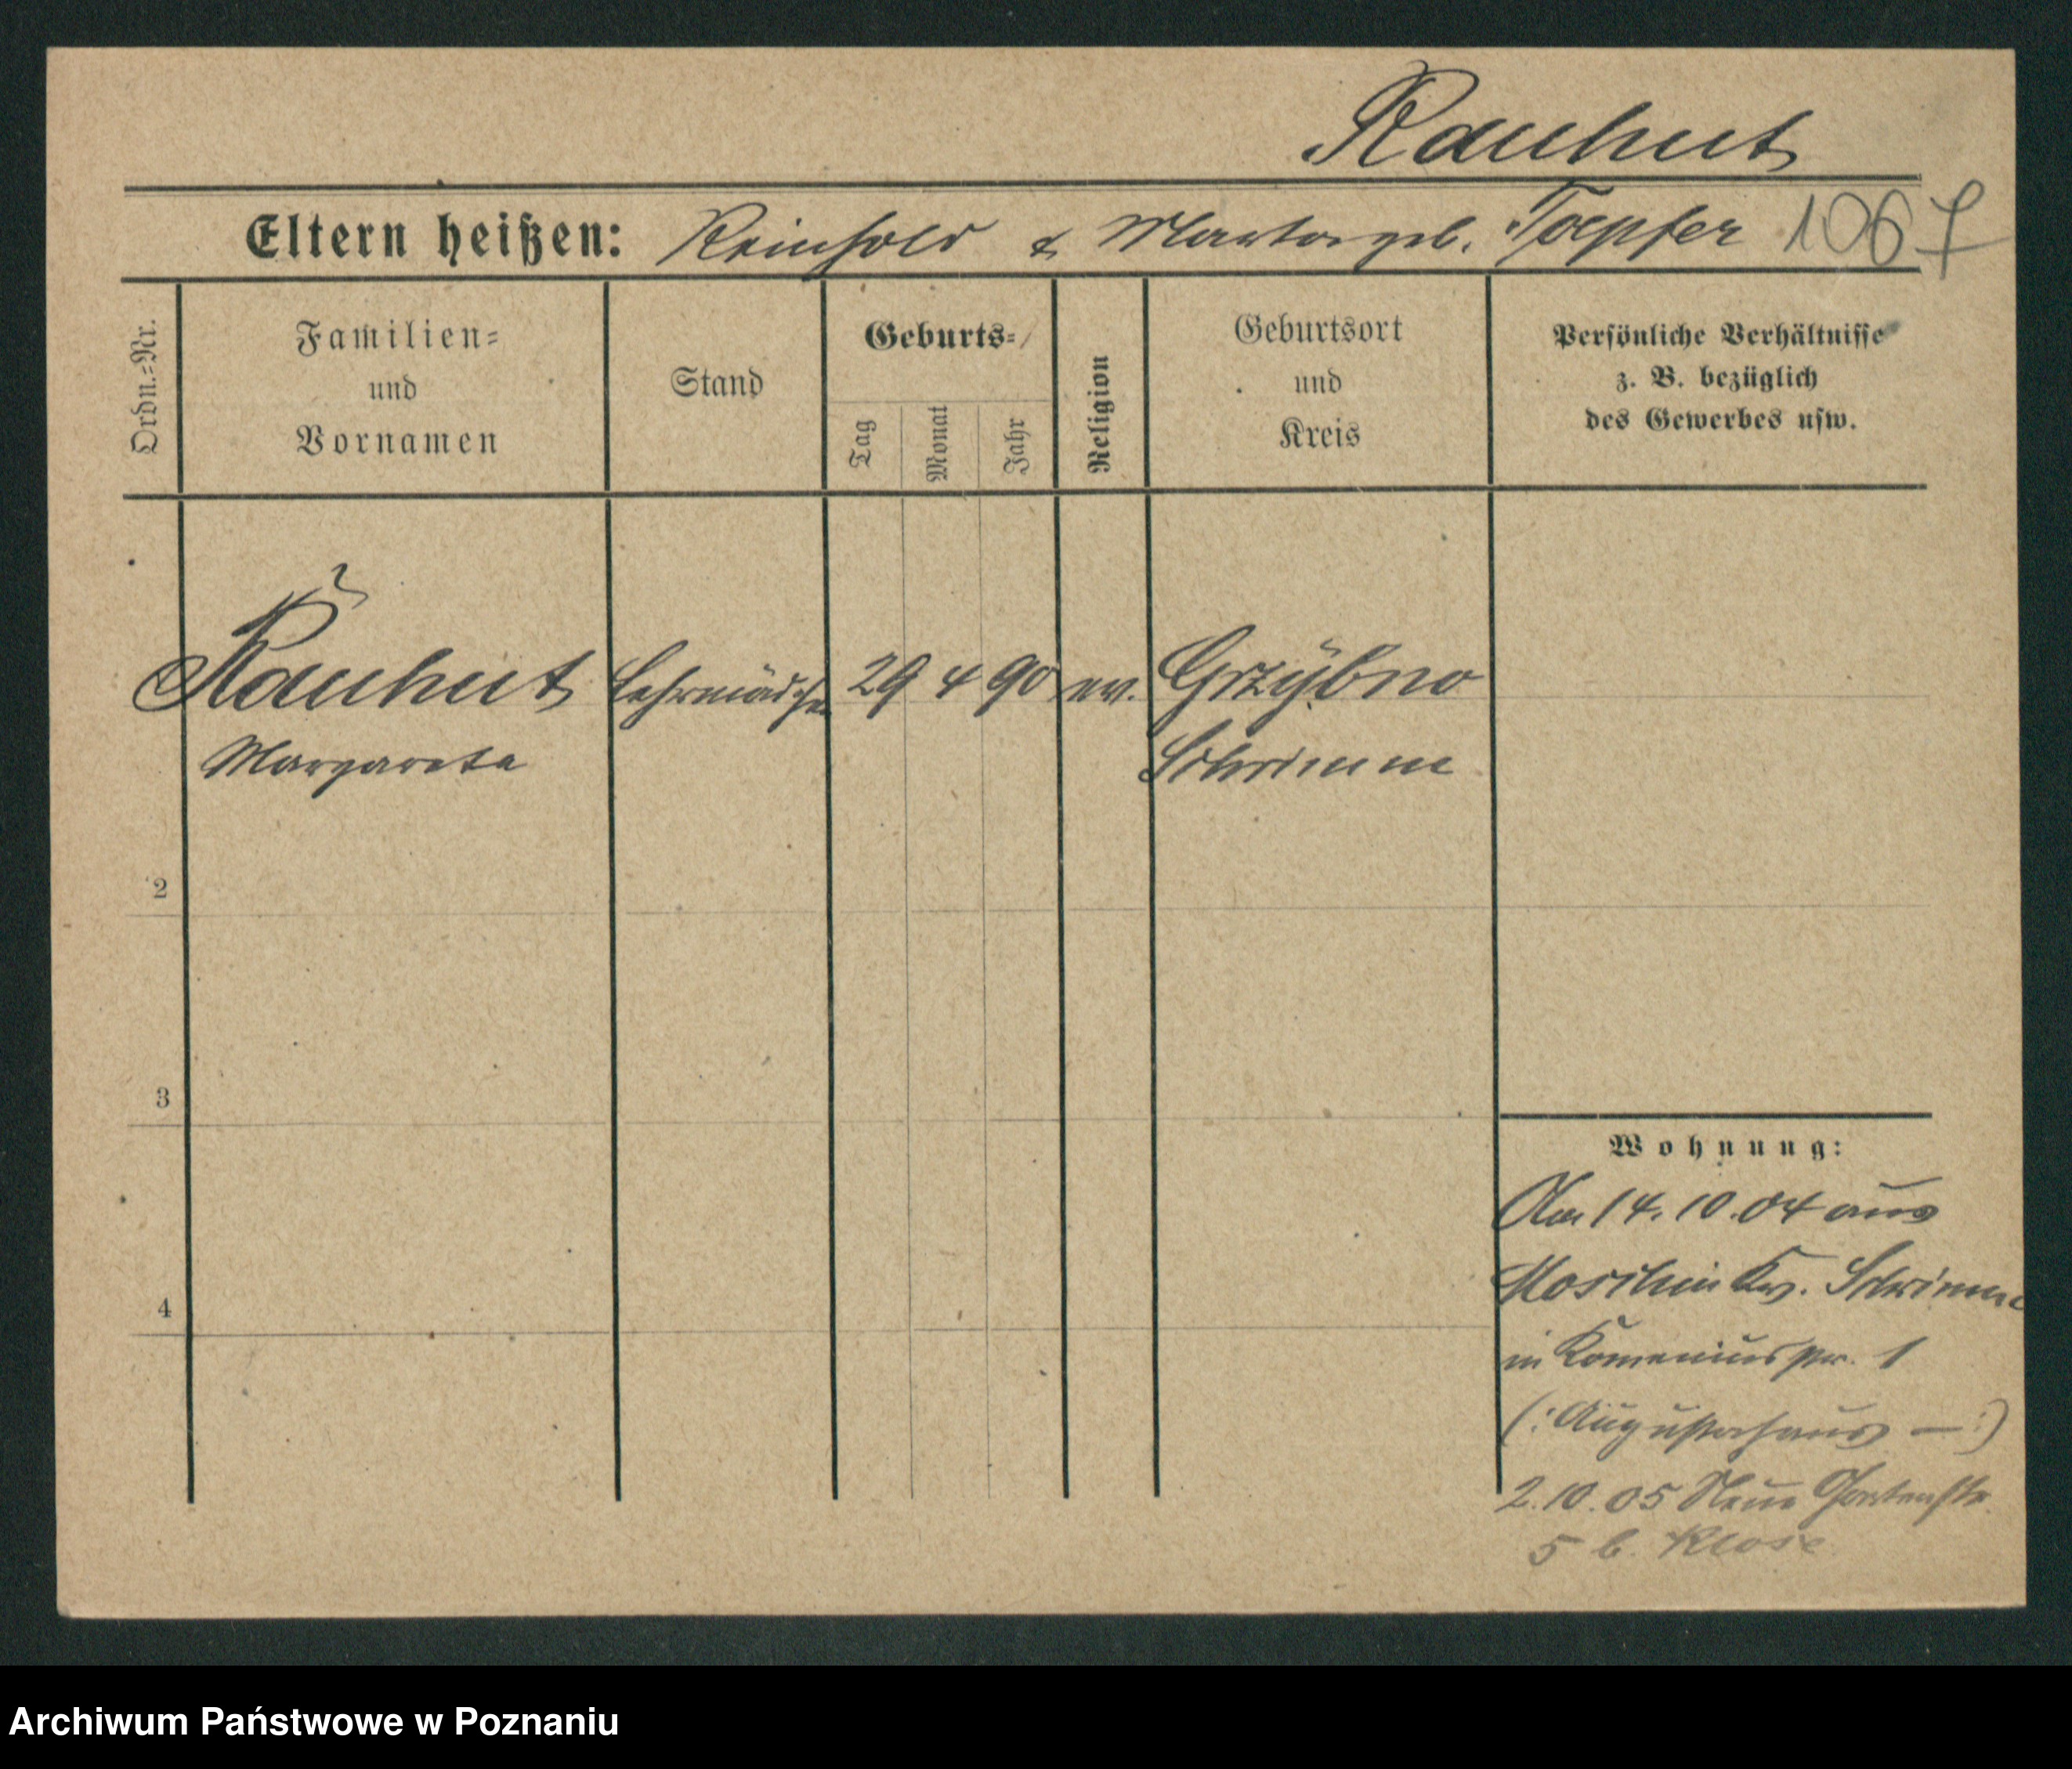 Rauhut
Eltern heißen: Reinhold & Martha geb. Toepfer 1067
Ordn.-Nr.
Familien-
und
Vornamen
Stand
Geburts-
Tag
Monat
Jahr
Religion
Geburtsort
und
Kreis
Persönliche Verhältnisse
z. B. bezüglich
des Gewerbes usw.
Rauhut Lehrmädchen 29 4 90 ev. Grzybno
Margareta Schrimm
2
3
4
Wohnung:
Am 14. 10. 04 aus
Moschin Kr. Schrimm
in Komeniusstr. 1
(: Augustahaus — :)
2. 10. 05 Neue Gartenstr.
5 b. Klose
Archiwum Państwowe w Poznaniu